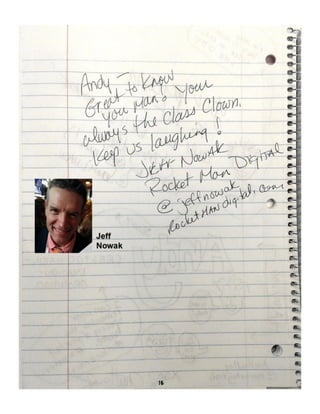 Andy -
Great to Know
you Man. Your
always the Class Clown.
Keep us laughing!
JEFF NOWAK
Rocket Man DIGITAL
@jeffnowak
RocketMANdigital.com
Jeff
Nowak
16